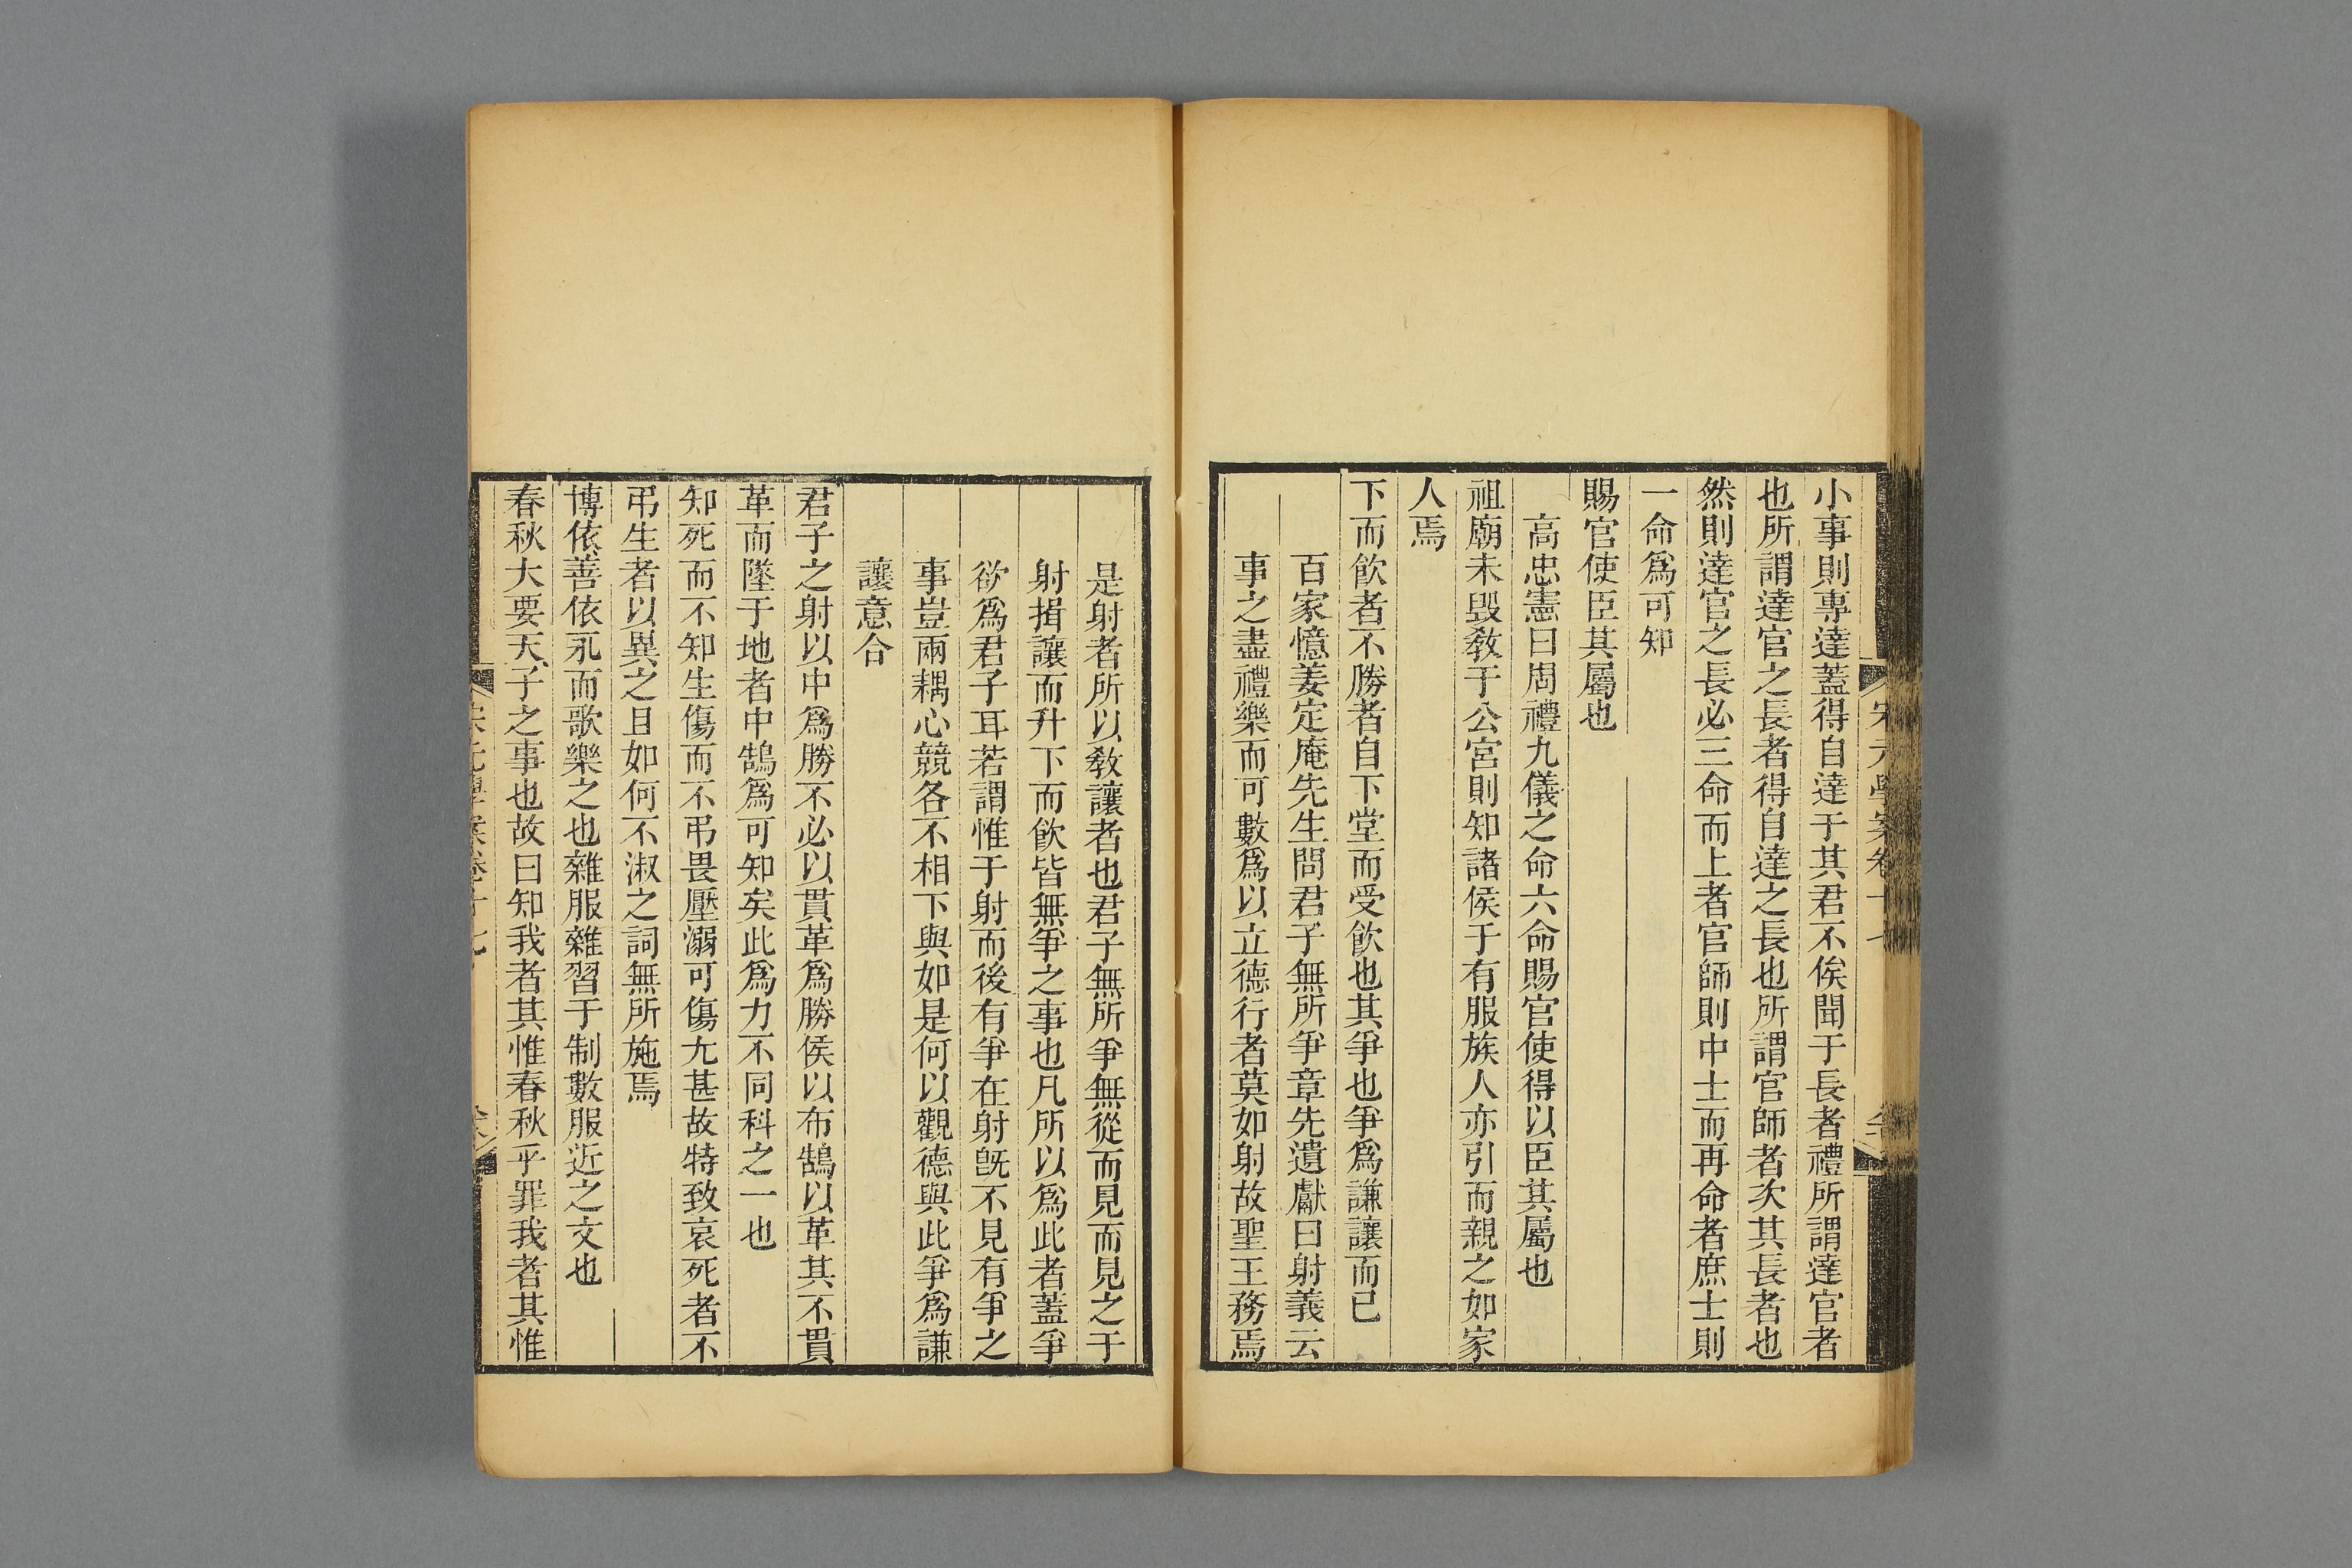 小事則專達蓋得自達于其君不俟聞于長者禮所謂達官者
也所謂達官之長者得自達之長也所謂官師者次其長者也
然則達官之長必三命而上者官師則中士而再命者庶士則
一命爲可知
賜官使臣其屬也
高忠憲曰周禮九儀之命六命賜官使得以臣其屬也
祖廟未毀敎于公宮則知諸侯于有服族人亦引而親之如家
人焉
下而飮者不勝者自下堂而受飮也其爭也爭爲謙讓而已
百家憶姜定庵先生問君子無所爭章先遺獻曰射義云
事之盡禮樂而可數爲以立德行者莫如射故聖王務焉
是射者所以敎讓者也君子無所爭無從而見而見之于
射揖讓而升下而飮皆無爭之事也凡所以爲此者蓋爭
欲爲君子耳若謂惟于射而後有爭在射旣不見有爭之
事豈兩耦心競各不相下與如是何以觀德與此爭爲謙
讓意合
君子之射以中爲勝不必以貫革爲勝侯以布鵠以革其不貫
革而墜于地者中鵠爲可知矣此爲力不同科之一也
知死而不知生傷而不弔畏壓溺可傷尤甚故特致哀死者不
弔生者以異之且如何不淑之詞無所施焉
博依善依永而歌樂之也雜服雜習于制數服近之文也
春秋大要天子之事也故曰知我者其惟春秋乎罪我者其惟
宋元學案卷十七